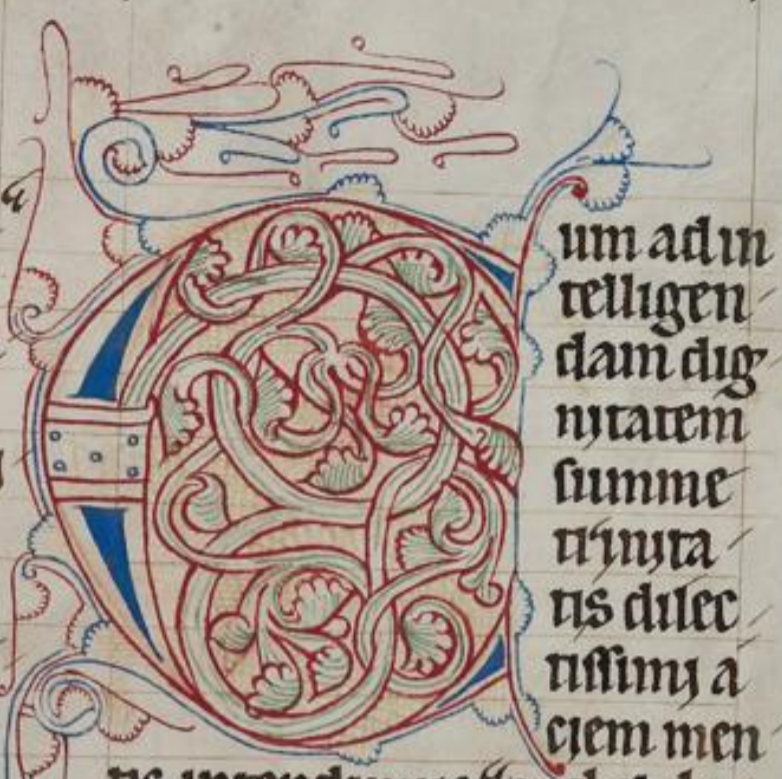 Cum ad in
telligen
dam dig
nitatem
summe
trinita
tis dilec
tissimi a
ciem men